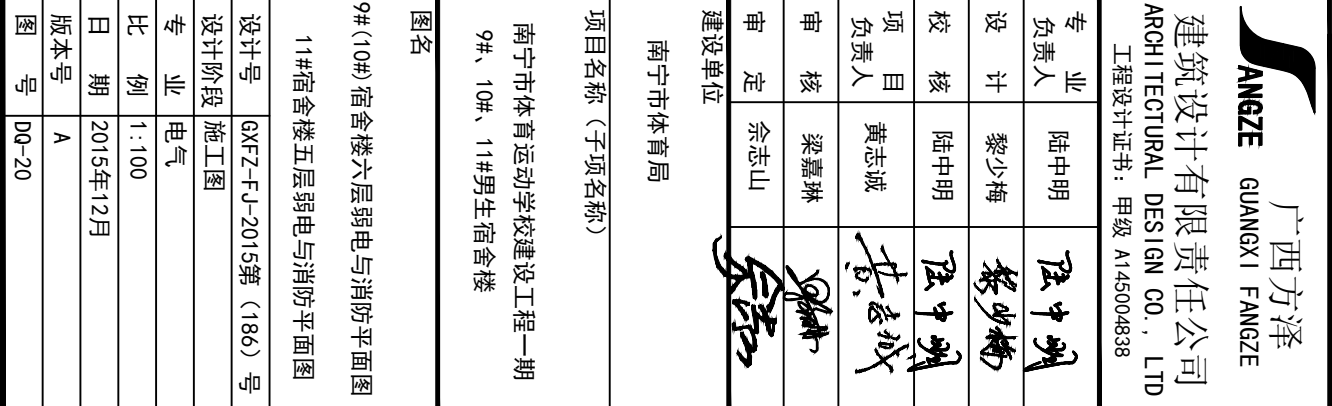 ANGZE
广西方泽
GUANGXI FANGZE
建筑设计有限责任公司
ARCHITECTURAL DESIGN CO., LTD
工程设计证书: 甲级 A145004838
专业负责人 陆中明 陆中明
设计 黎少梅 黎少梅
校核 陆中明 陆中明
项目负责人 黄志诚 黄志诚
审核 梁嘉琳
审定 佘志山
建设单位
南宁市体育局
项目名称（子项名称）
南宁市体育运动学校建设工程一期
9#、10#、11#男生宿舍楼
图名
9#(10#)宿舍楼六层弱电与消防平面图
11#宿舍楼五层弱电与消防平面图
设计号 GXFZ-FJ-2015第（186）号
设计阶段 施工图
专业 电气
比例 1:100
日期 2015年12月
版本号 A
图号 DQ-20